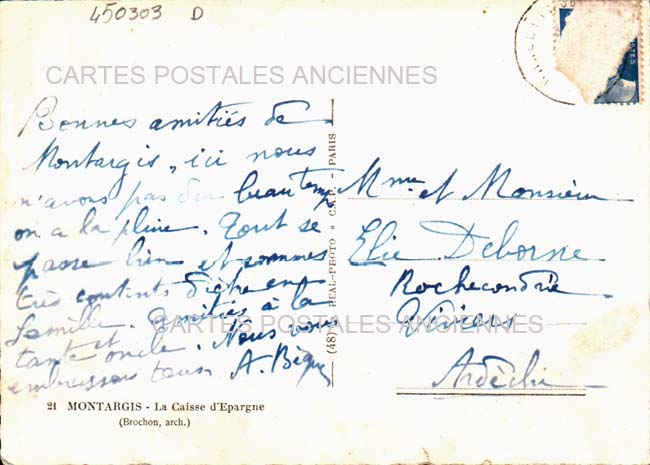 450303 D
CARTES POSTALES ANCIENNES
Bonnes amitiés de
Montargis, ici nous
n'avons pas du beau temps
on a la pluie. Tout se
passe bien et sommes
très contents d'être en
famille. Amitiés à la
tante et oncle. Nous vous
embrassons tous. A.
(48) REAL-PHOTO • C.A.P. - PARIS
Mme et Monsieur
Elie Deborne
Rochecondrie
Viviers
Ardèche
CARTES POSTALES ANCIENNES
21 MONTARGIS - La Caisse d'Epargne
(Brochon, arch.)